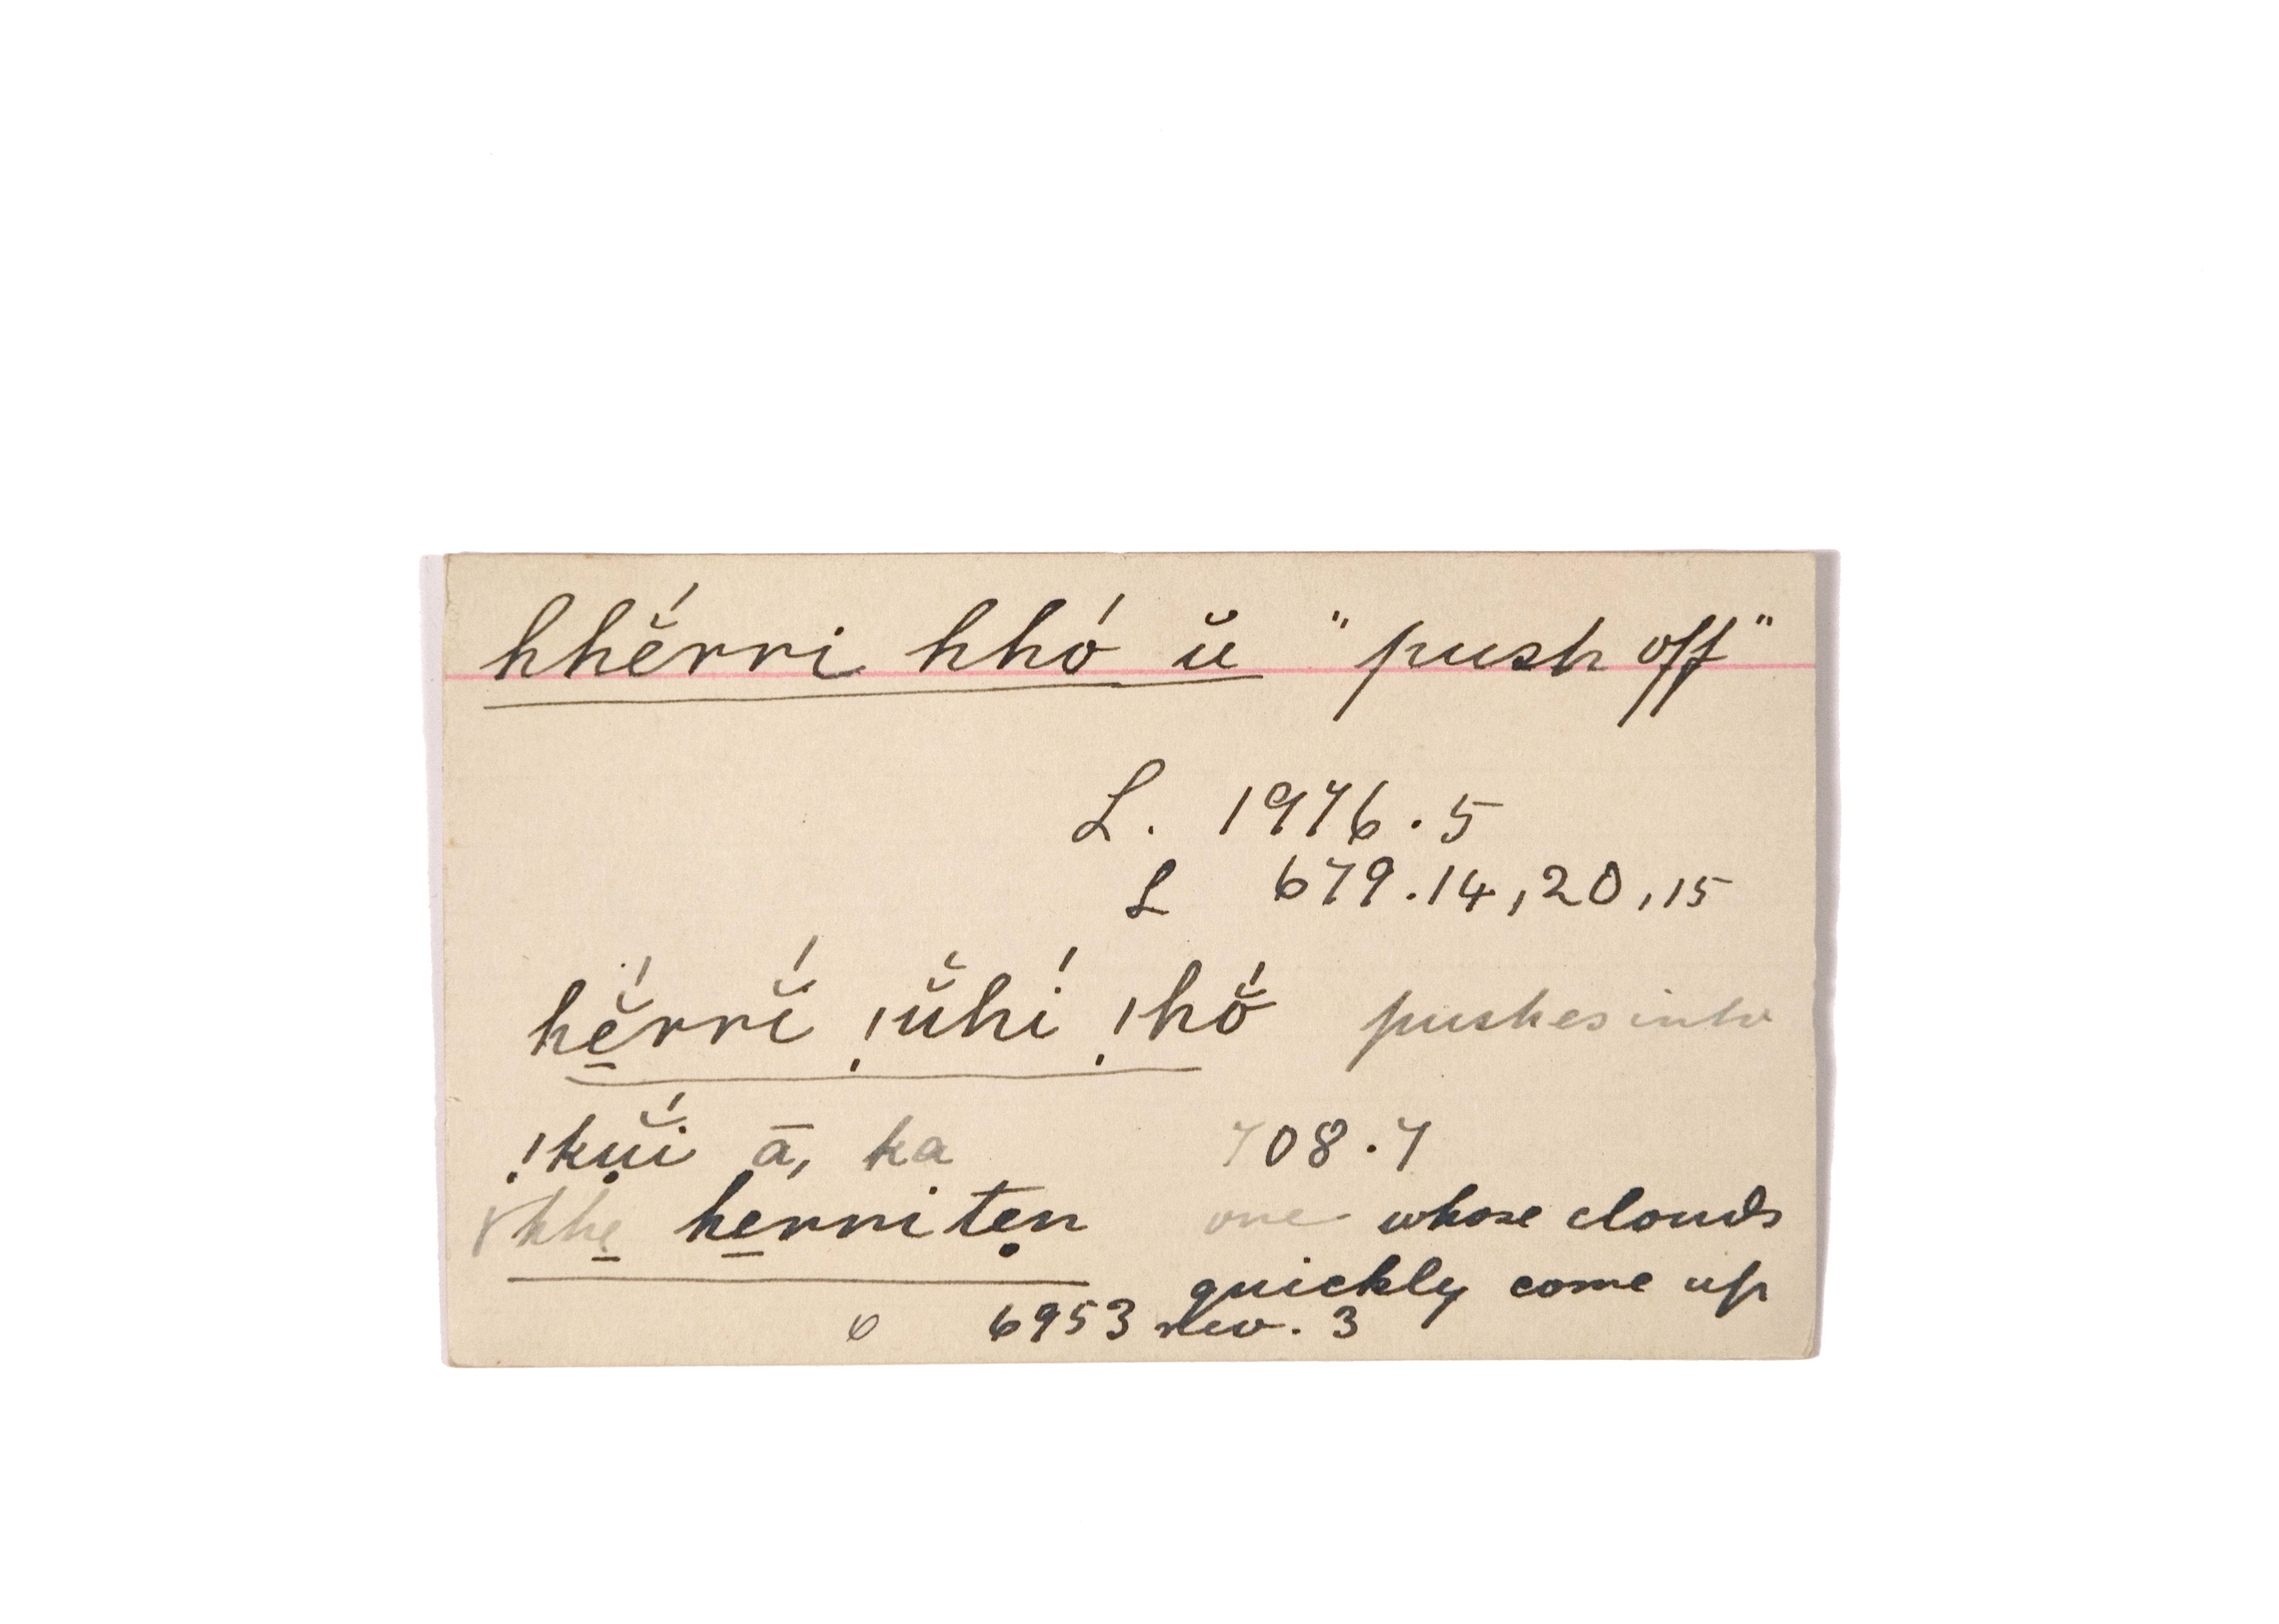 hhĕ́rri hhó ŭ "push off"
L. 1976.5
L 679.14,20,15
hĕ̱́rrĭ́ !ŭ̆hí !hŏ́ pushes into
!kụ̆í ā, ka 708.7
khe̱ he̱rriten one whose clouds
quickly come up
6953 rev. 3